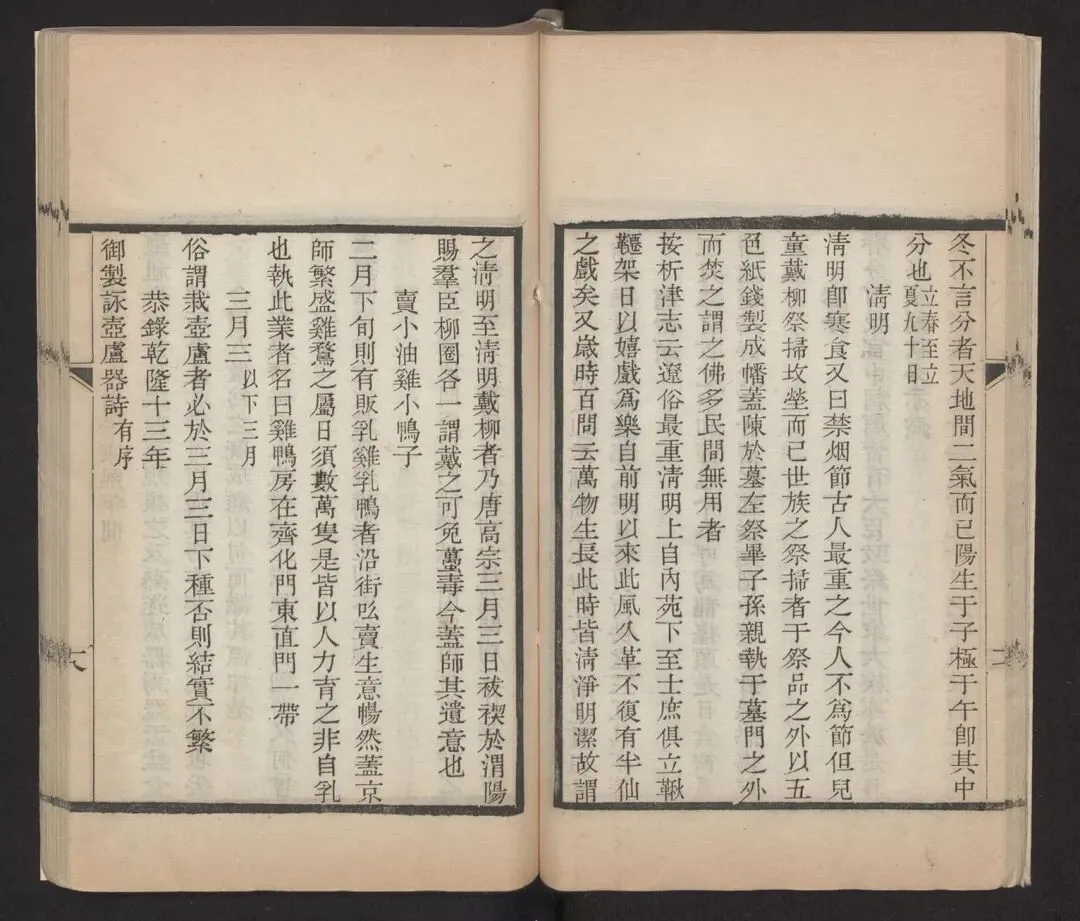 冬不言分者天地間二氣而已陽生于子極于午卽其中
分也立春至立夏九十日
清明
淸明卽寒食又曰禁烟節古人最重之今人不爲節但兒
童戴柳祭掃坟塋而已世族之祭掃者于祭品之外以五
色紙錢製成幡蓋陳於墓左祭畢子孫親執于墓門之外
而焚之謂之佛多民間無用者
按析津志云遼俗最重淸明上自內苑下至士庶俱立鞦
韆架日以嬉戲爲樂自前明以來此風久革不復有半仙
之戲矣又歲時百問云萬物生長此時皆淸淨明潔故謂
之淸明至淸明戴柳者乃唐高宗三月三日祓禊於渭陽
賜羣臣柳圈各一謂戴之可免蠆毒今蓋師其遺意也
賣小油雞小鴨子
二月下旬則有販乳雞乳鴨者沿街吆賣生意暢然蓋京
師繁盛雞鶩之屬日須數萬隻是皆以人力育之非自乳
也執此業者名曰雞鴨房在齊化門東直門一帶
三月三以下三月
俗謂栽壺盧者必於三月三日下種否則結實不繁
恭錄乾隆十三年
御製詠壺盧器詩有序